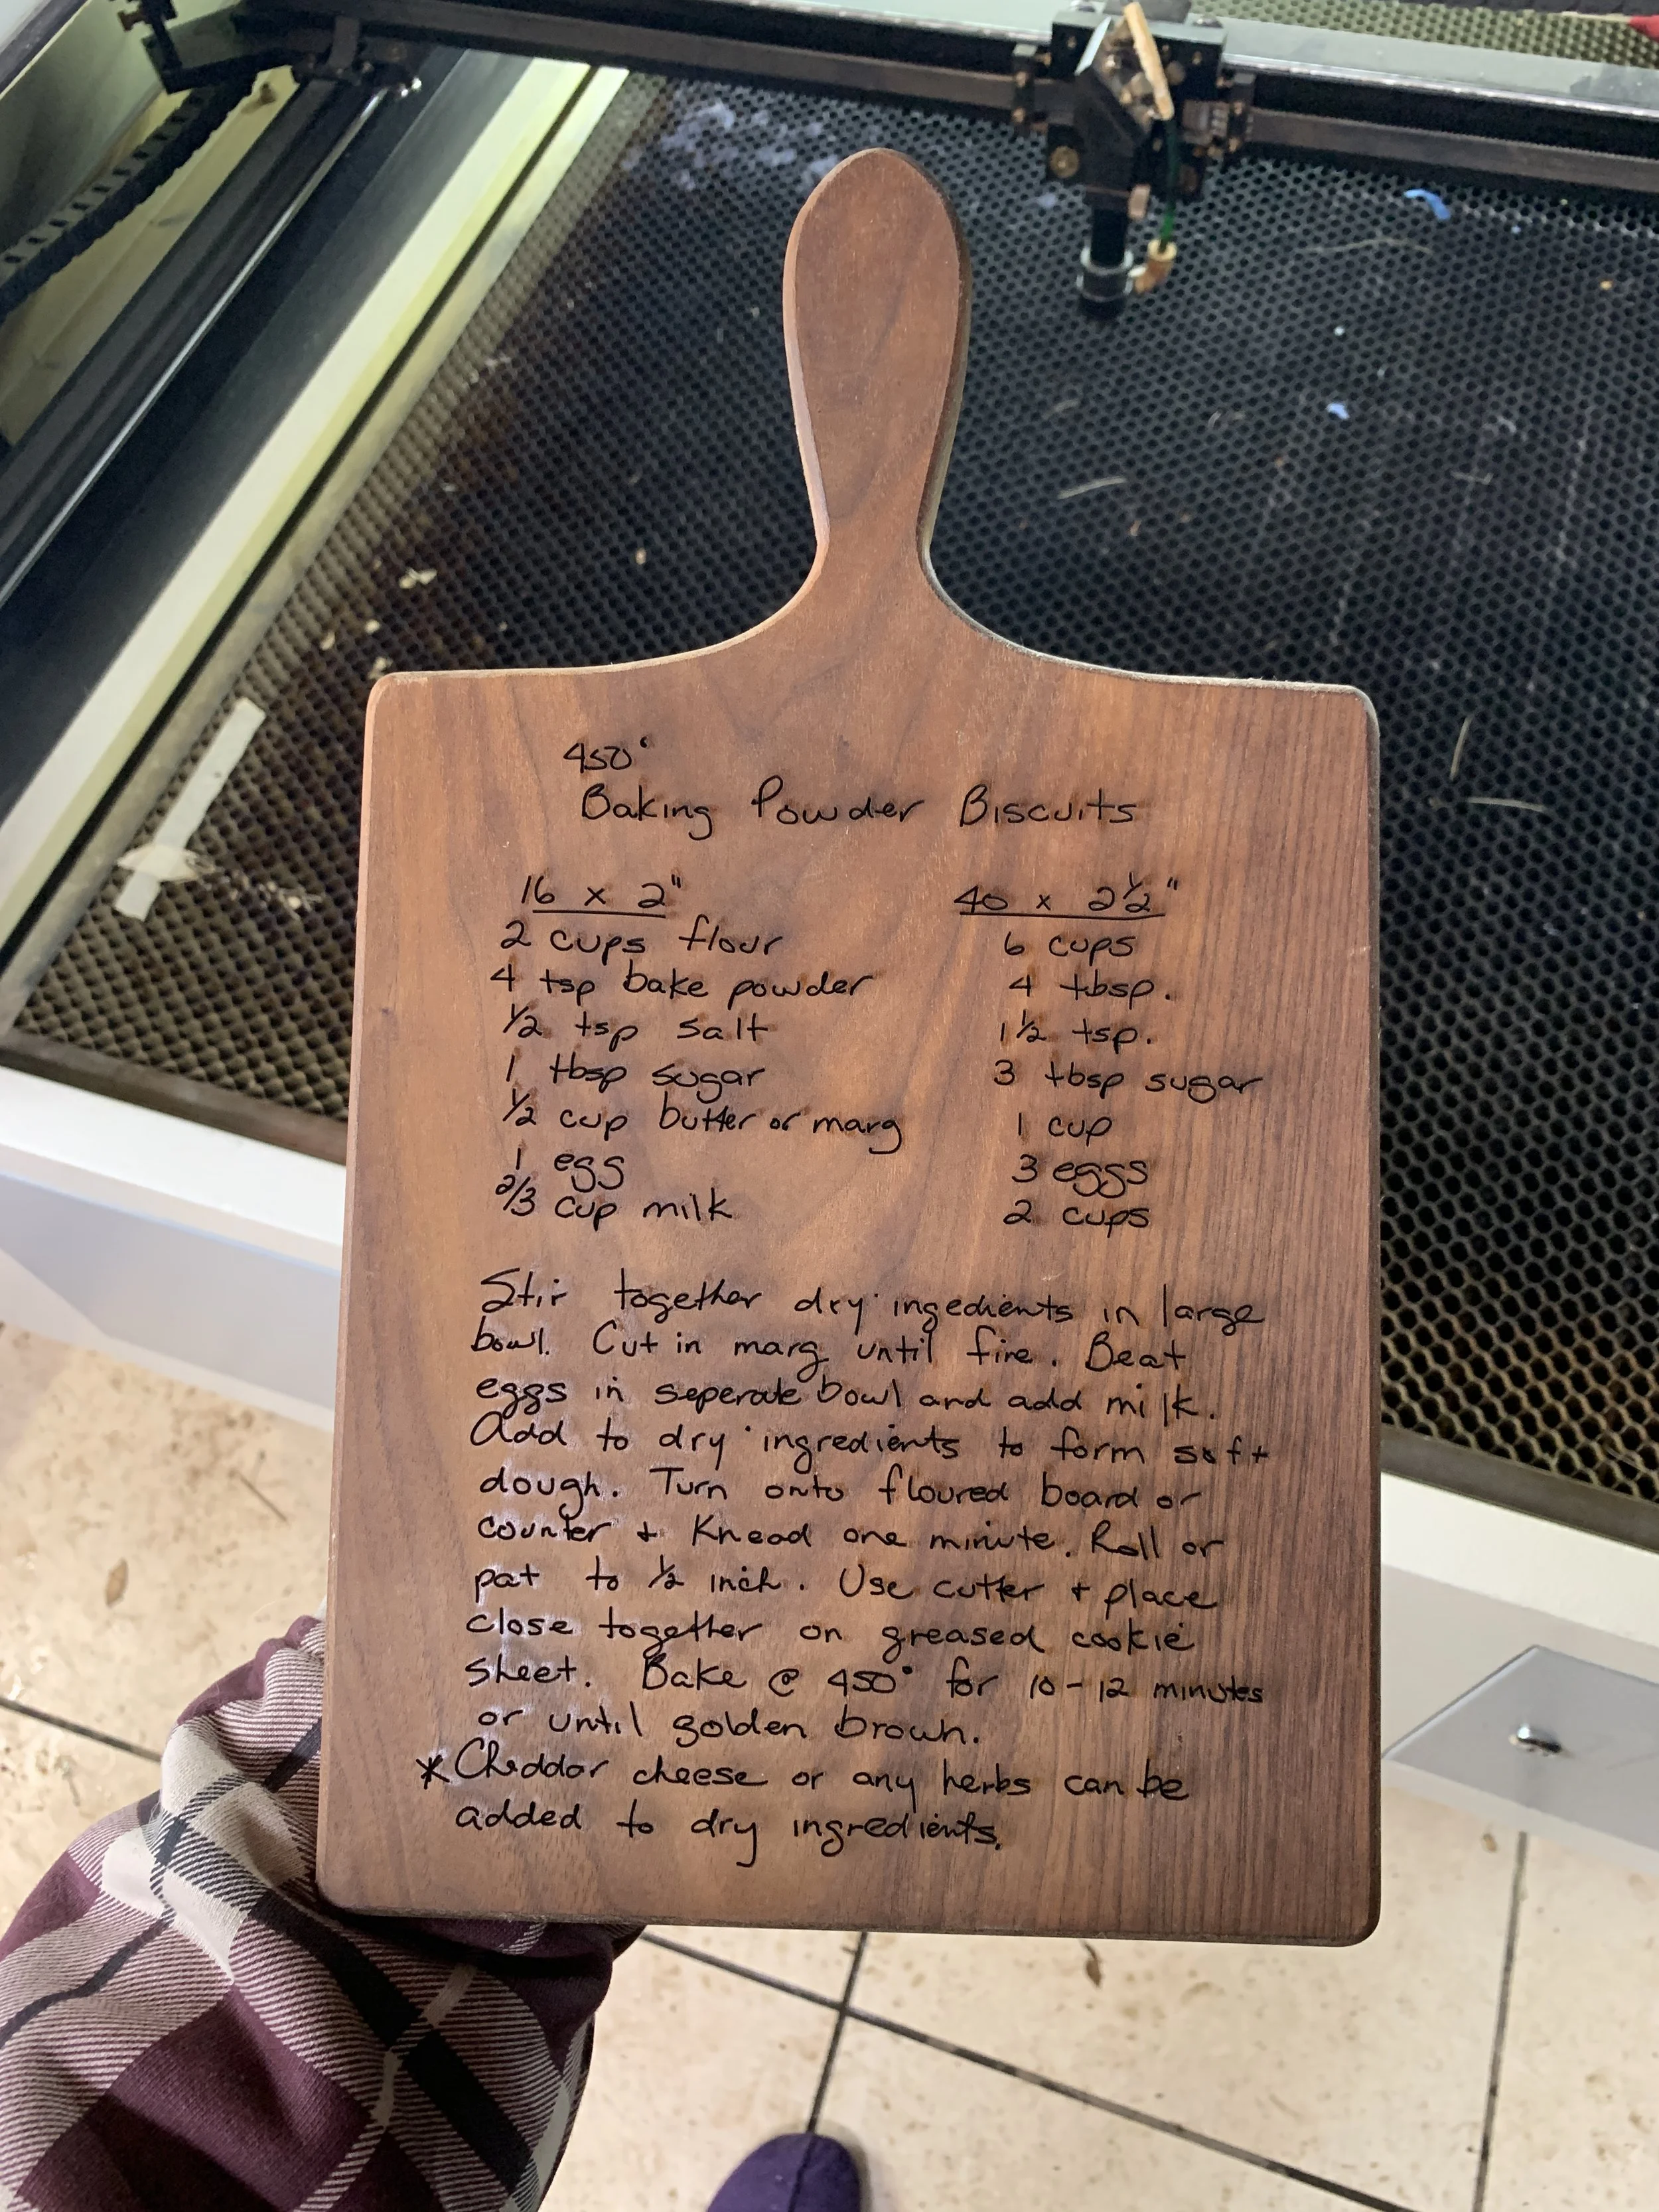 450°
Baking Powder Biscuits
16 x 2"
2 cups flour
4 tsp bake powder
1/2 tsp salt
1 tbsp sugar
1/2 cup butter or marg
1 egg
2/3 cup milk
40 x 2 1/2"
6 cups
4 tbsp.
1 1/2 tsp.
3 tbsp sugar
1 cup
3 eggs
2 cups
Stir together dry ingedients in large
bowl. Cut in marg until fine. Beat
eggs in seperate bowl and add milk.
Add to dry ingredients to form soft
dough. Turn onto floured board or
counter + Knead one minute. Roll or
pat to 1/2 inch. Use cutter + place
close together on greased cookie
sheet. Bake @ 450° for 10-12 minutes
or until golden brown.
*Cheddar cheese or any herbs can be
added to dry ingredients.